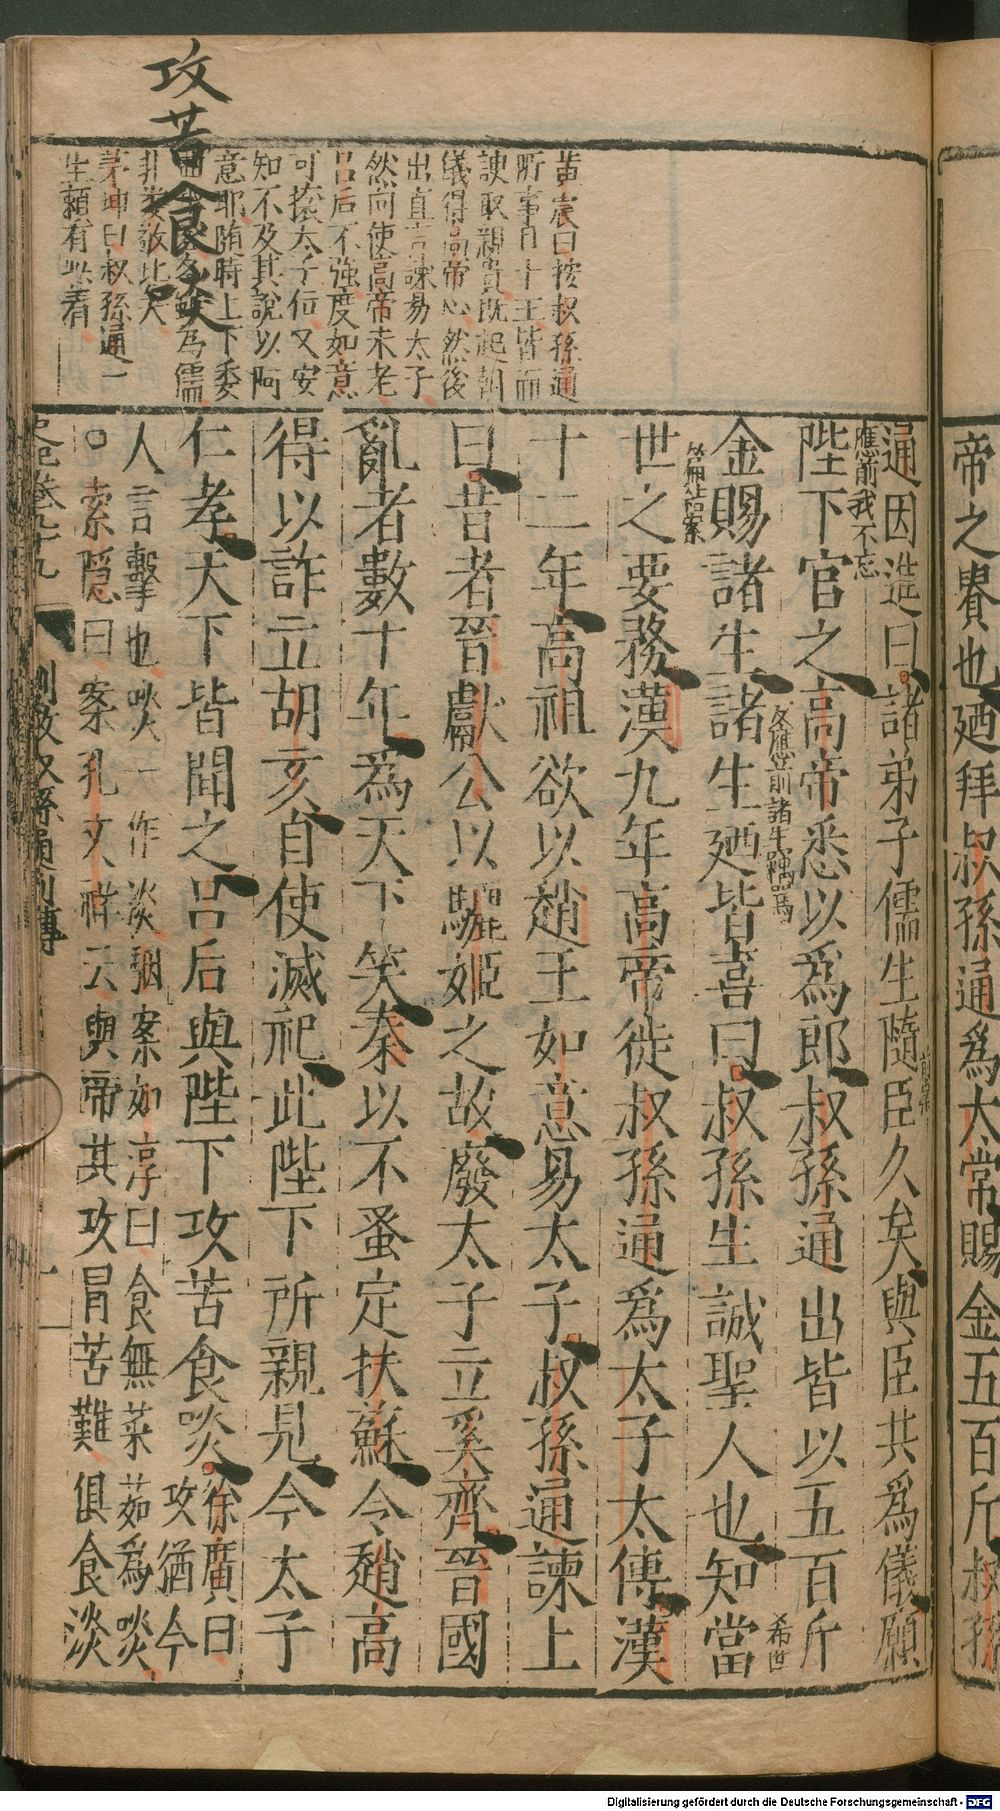 帝之賚也廼拜叔孫通爲太常賜金五百斤叔孫
通因進曰諸弟子儒生隨臣久矣與臣共爲儀願
應前我不忘
陛下官之高帝悉以爲郎叔孫通出皆以五百斤
又應前諸生竊罵
希世
金賜諸生諸生廼皆喜曰叔孫生誠聖人也知當
世之要務漢九年高帝徙叔孫通爲太子太傅漢
十二年高祖欲以趙王如意易太子叔孫通諫上
曰昔者晉獻公以驪姬之故廢太子立奚齊晉國
亂者數十年爲天下笑秦以不蚤定扶蘇令趙高
得以詐立胡亥自使滅祀此陛下所親見今太子
仁孝天下皆聞之呂后與陛下攻苦食啖
徐廣曰
攻猶今
人言擊也啖一作淡駰案如淳曰食無菜茹爲啖
○索隱曰案孔文祥云與帝共攻冒苦難俱食淡
史記卷九十九
劉敬叔孫通列傳
十一
攻苦食啖
黃震曰按叔孫通
所事且十主皆面
諛取親貴既起朝
儀得高帝心然後
出直言諫易太子
然向使高帝未老
呂后不強度如意
可攘太子位又安
知不及其說以阿
意耶随時上下委
為儒
茅坤曰叔孫通一
生賴有此着
Digitalisierung gefördert durch die Deutsche Forschungsgemeinschaft - DFG